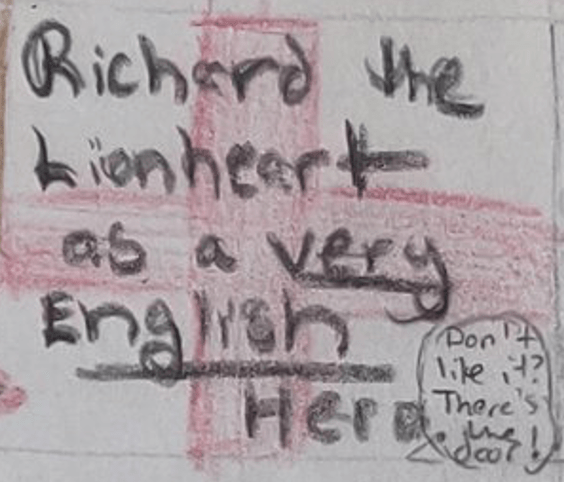 Richard the
Lionheart
as a very
English
Hero
Don't
like it?
There's
the
door!